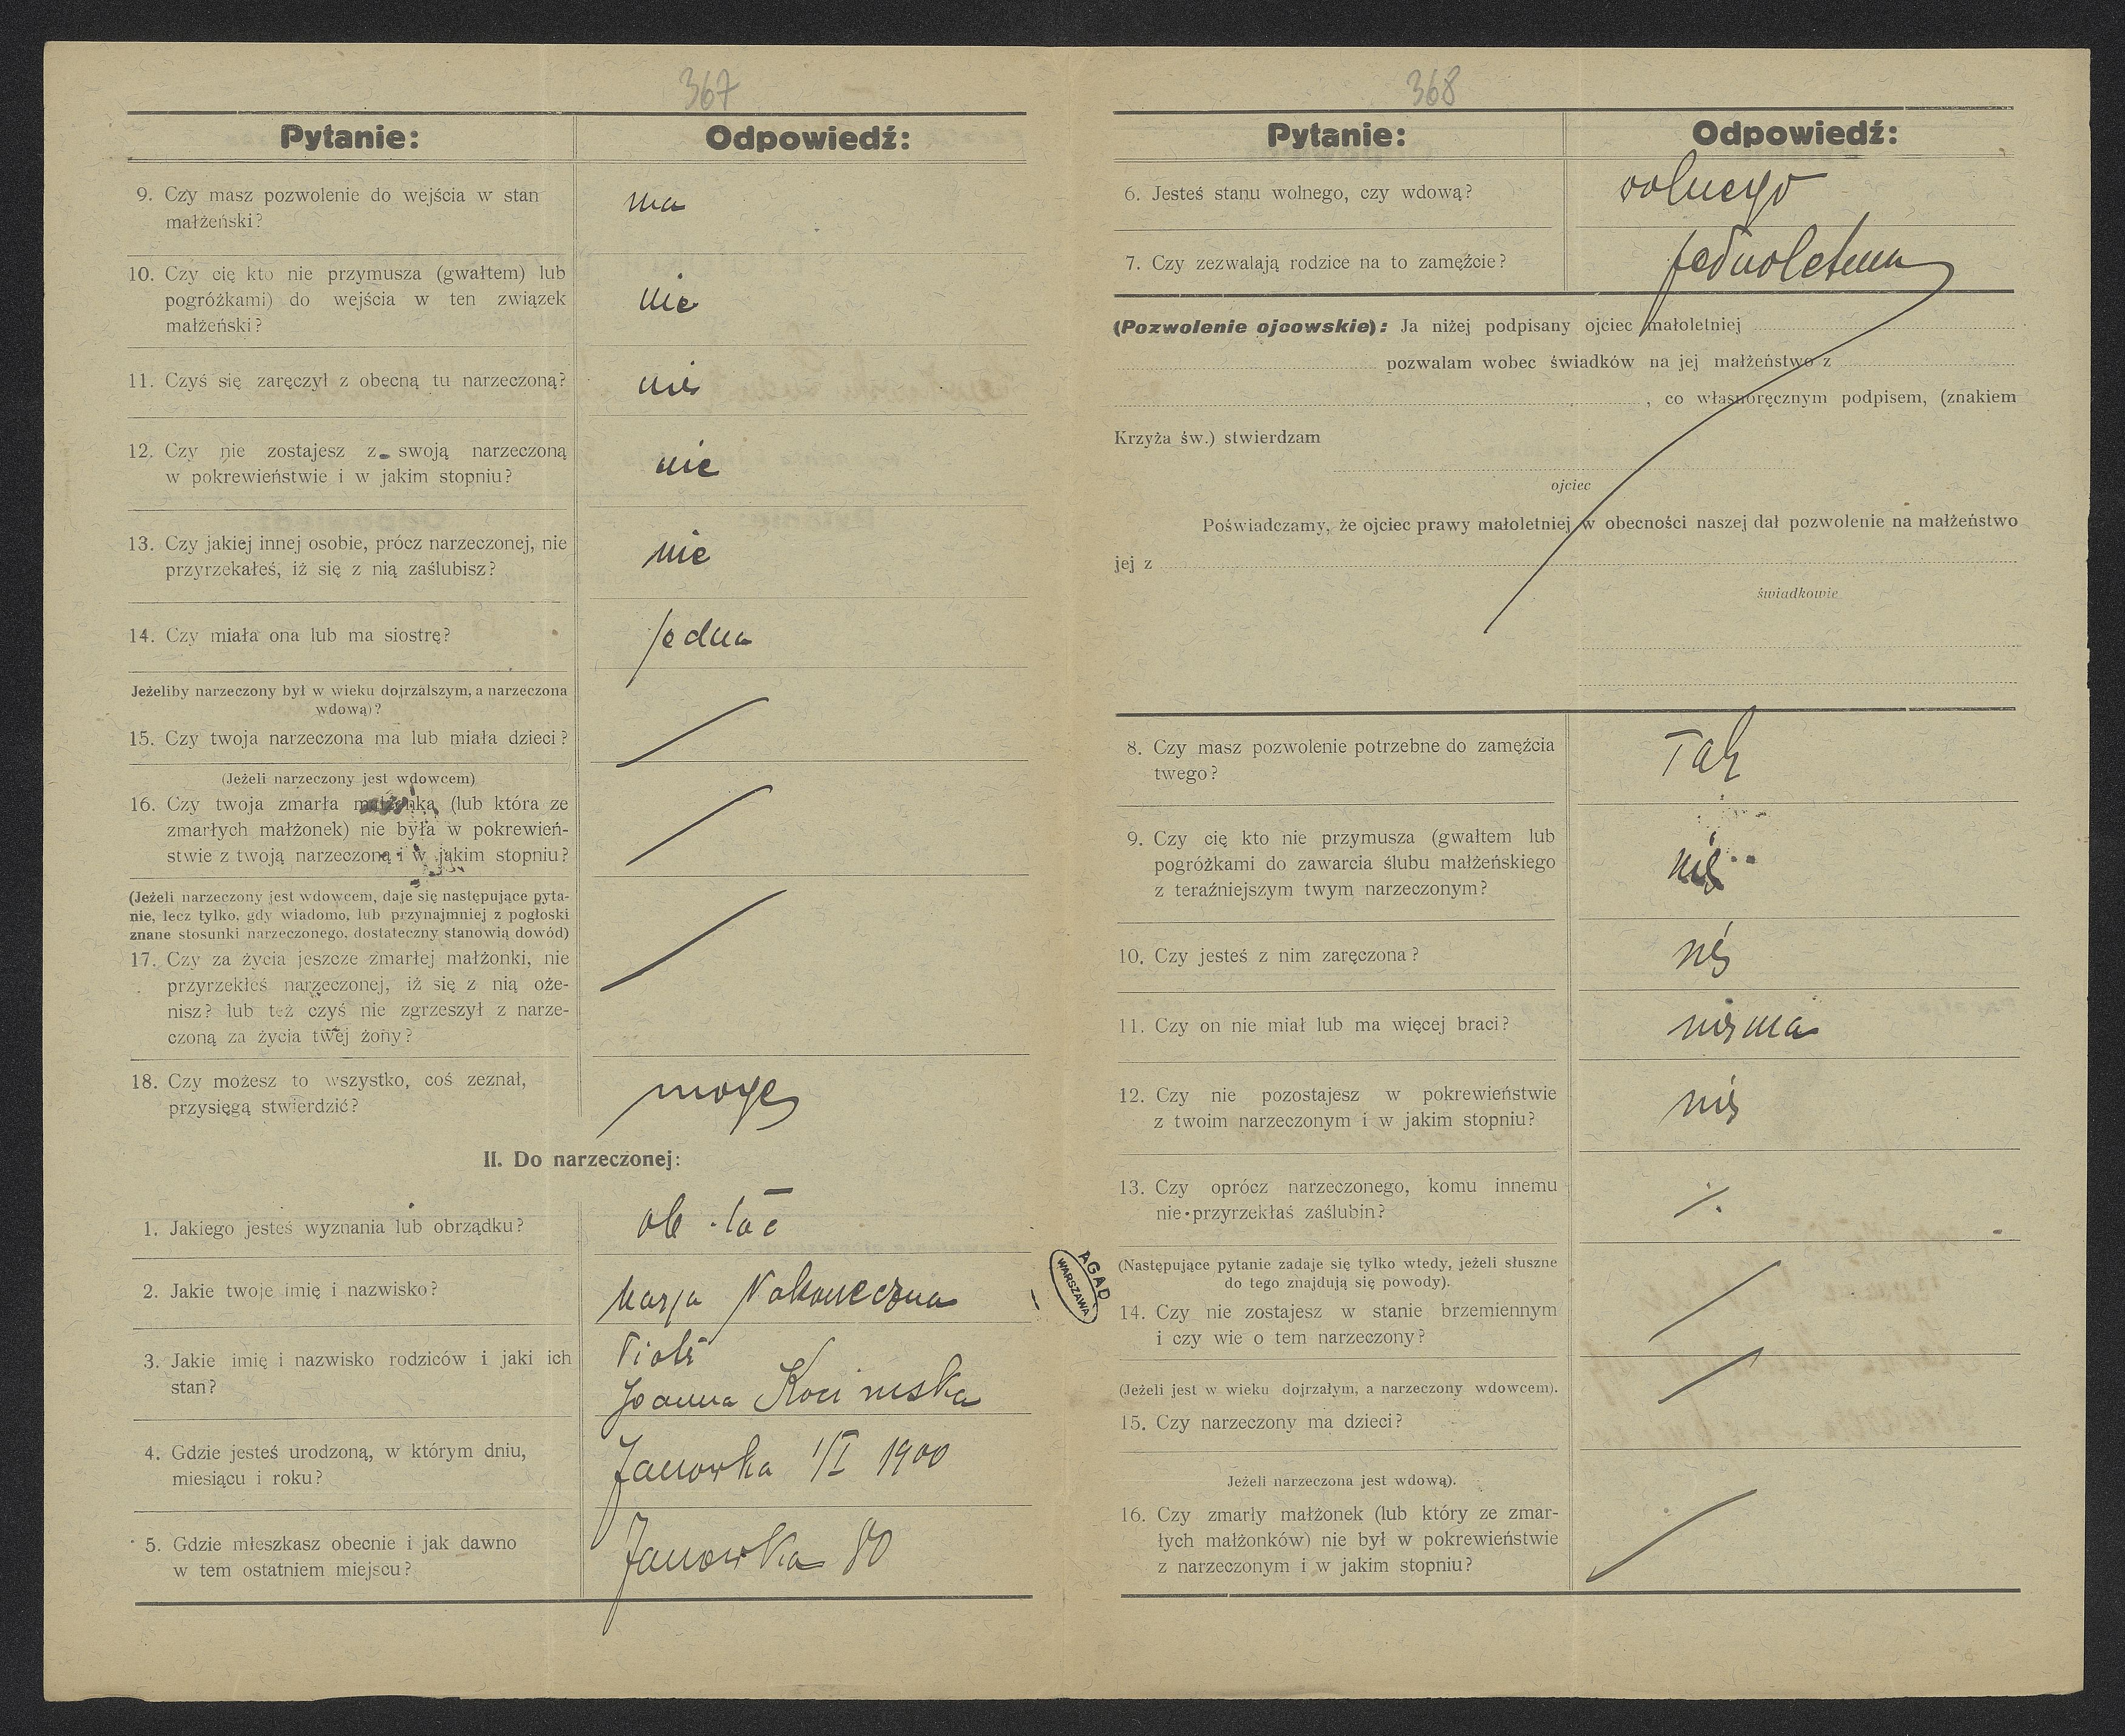 367
Pytanie: Odpowiedź:
9. Czy masz pozwolenie do wejścia w stan
małżeński?
ma
10. Czy cię kto nie przymusza (gwałtem) lub
pogróżkami) do wejścia w ten związek
małżeński?
nie
11. Czyś się zaręczył z obecną tu narzeczoną?
nie
12. Czy nie zostajesz z swoją narzeczoną
w pokrewieństwie i w jakim stopniu?
nie
13. Czy jakiej innej osobie, prócz narzeczonej, nie
przyrzekałeś, iż się z nią zaślubisz?
nie
14. Czy miała ona lub ma siostrę?
jedna
Jeżeliby narzeczony był w wieku dojrzalszym, a narzeczona
wdową)?
15. Czy twoja narzeczona ma lub miała dzieci?
(Jeżeli narzeczony jest wdowcem)
16. Czy twoja zmarła małżonka (lub która ze
zmarłych małżonek) nie była w pokrewień-
stwie z twoją narzeczoną i w jakim stopniu?
(Jeżeli narzeczony jest wdowcem, daje się następujące pyta-
nie, lecz tylko, gdy wiadomo, lub przynajmniej z pogłoski
znane stosunki narzeczonego, dostateczny stanowią dowód)
17. Czy za życia jeszcze zmarłej małżonki, nie
przyrzekłeś narzeczonej, iż się z nią oże-
nisz? lub też czyś nie zgrzeszył z narze-
czoną za życia twej żony?
18. Czy możesz to wszystko, coś zeznał,
przysięgą stwierdzić?
mogę
II. Do narzeczonej:
1. Jakiego jesteś wyznania lub obrządku?
2. Jakie twoje imię i nazwisko?
Marja Nakoneczna
3. Jakie imię i nazwisko rodziców i jaki ich
stan?
Piotr
Joanna
4. Gdzie jesteś urodzoną, w którym dniu,
miesiącu i roku?
Janowka 1/I 1900
5. Gdzie mieszkasz obecnie i jak dawno
w tem ostatniem miejscu?
Janowka 80
AGAD
WARSZAWA
368
Pytanie: Odpowiedź:
6. Jesteś stanu wolnego, czy wdową?
wolnego
7. Czy zezwalają rodzice na to zamęźcie?
(Pozwolenie ojcowskie): Ja niżej podpisany ojciec małoletniej
pozwalam wobec świadków na jej małżeństwo z
, co własnoręcznym podpisem, (znakiem
Krzyża św.) stwierdzam
ojciec
Poświadczamy, że ojciec prawy małoletniej w obecności naszej dał pozwolenie na małżeństwo
jej z
świadkowie
8. Czy masz pozwolenie potrzebne do zamęźcia
twego?
Tak
9. Czy cię kto nie przymusza (gwałtem lub
pogróżkami do zawarcia ślubu małżeńskiego
z teraźniejszym twym narzeczonym?
nie
10. Czy jesteś z nim zaręczona?
nie
11. Czy on nie miał lub ma więcej braci?
niema
12. Czy nie pozostajesz w pokrewieństwie
z twoim narzeczonym i w jakim stopniu?
nie
13. Czy oprócz narzeczonego, komu innemu
nie przyrzekłaś zaślubin?
(Następujące pytanie zadaje się tylko wtedy, jeżeli słuszne
do tego znajdują się powody).
14. Czy nie zostajesz w stanie brzemiennym
i czy wie o tem narzeczony?
(Jeżeli jest w wieku dojrzałym, a narzeczony wdowcem).
15. Czy narzeczony ma dzieci?
Jeżeli narzeczona jest wdową).
16. Czy zmarły małżonek (lub który ze zmar-
łych małżonków) nie był w pokrewieństwie
z narzeczonym i w jakim stopniu?